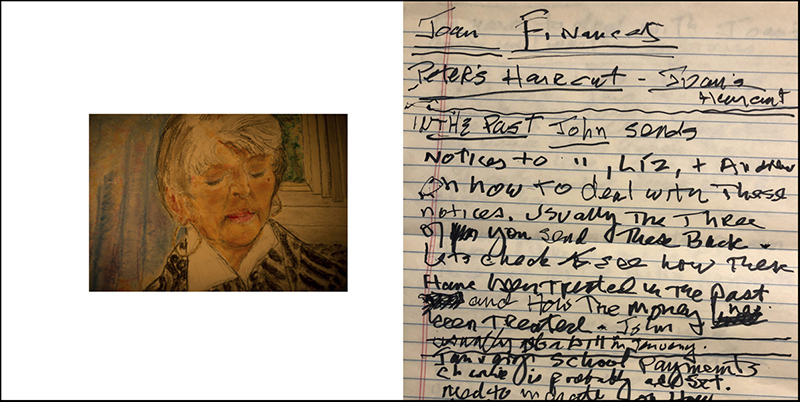 Joan Finances
Peter's Haircut - Joan's
Haircut
IN THE PAST John sends
Notices to ", Liz, + Andrew
On how to deal with These
notices. Usually The Three
of you send These Back.
Lets check to see how These
Have been Treated in the Past
and How The Money has
been Treated. John
usually a bill in January.
School Payments
Charlie is probably all set.
need to on How